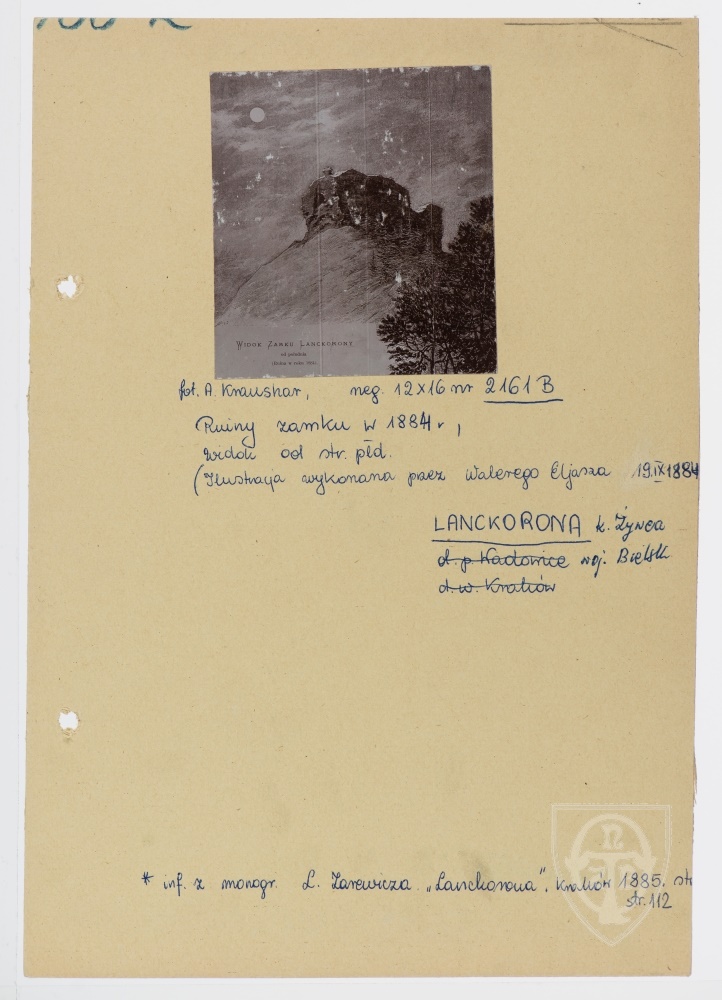 WIDOK ZAMKU LANCKORONY
od południa
fot. A. Kraushar, neg. 12x16 nr 2161 B
Ruiny zamku w 1884 r,
widok od str. płd.
(Ilustracja wykonana przez Walerego Eljasza 19.IX.1884
LANCKORONA k. Żywca
d. p. Wadowice woj. Bielsk
d. w. Kraków
* inf. z monogr. L. Zarewicza "Lanckorona", Kraków 1885. str
str. 112